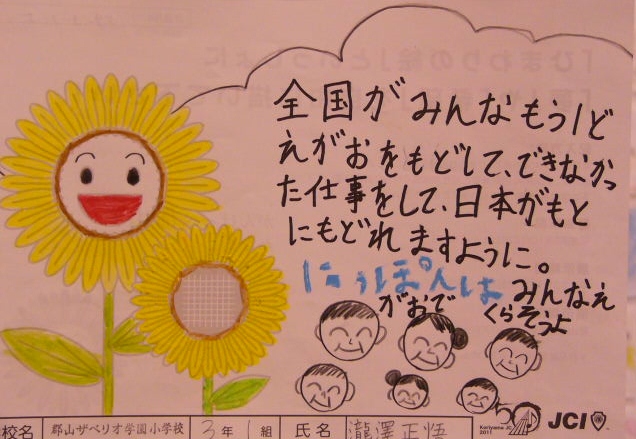 全国がみんなもう1ど
えがおをもどして、できなかっ
た仕事をして、日本がもと
にもどれますように。
にっぽんは みんなえ
がおで くらそうよ
校名 郡山ザベリオ学園小学校 3年 1組 氏名 瀧澤正悟
Koriyama JC
2011
JCI